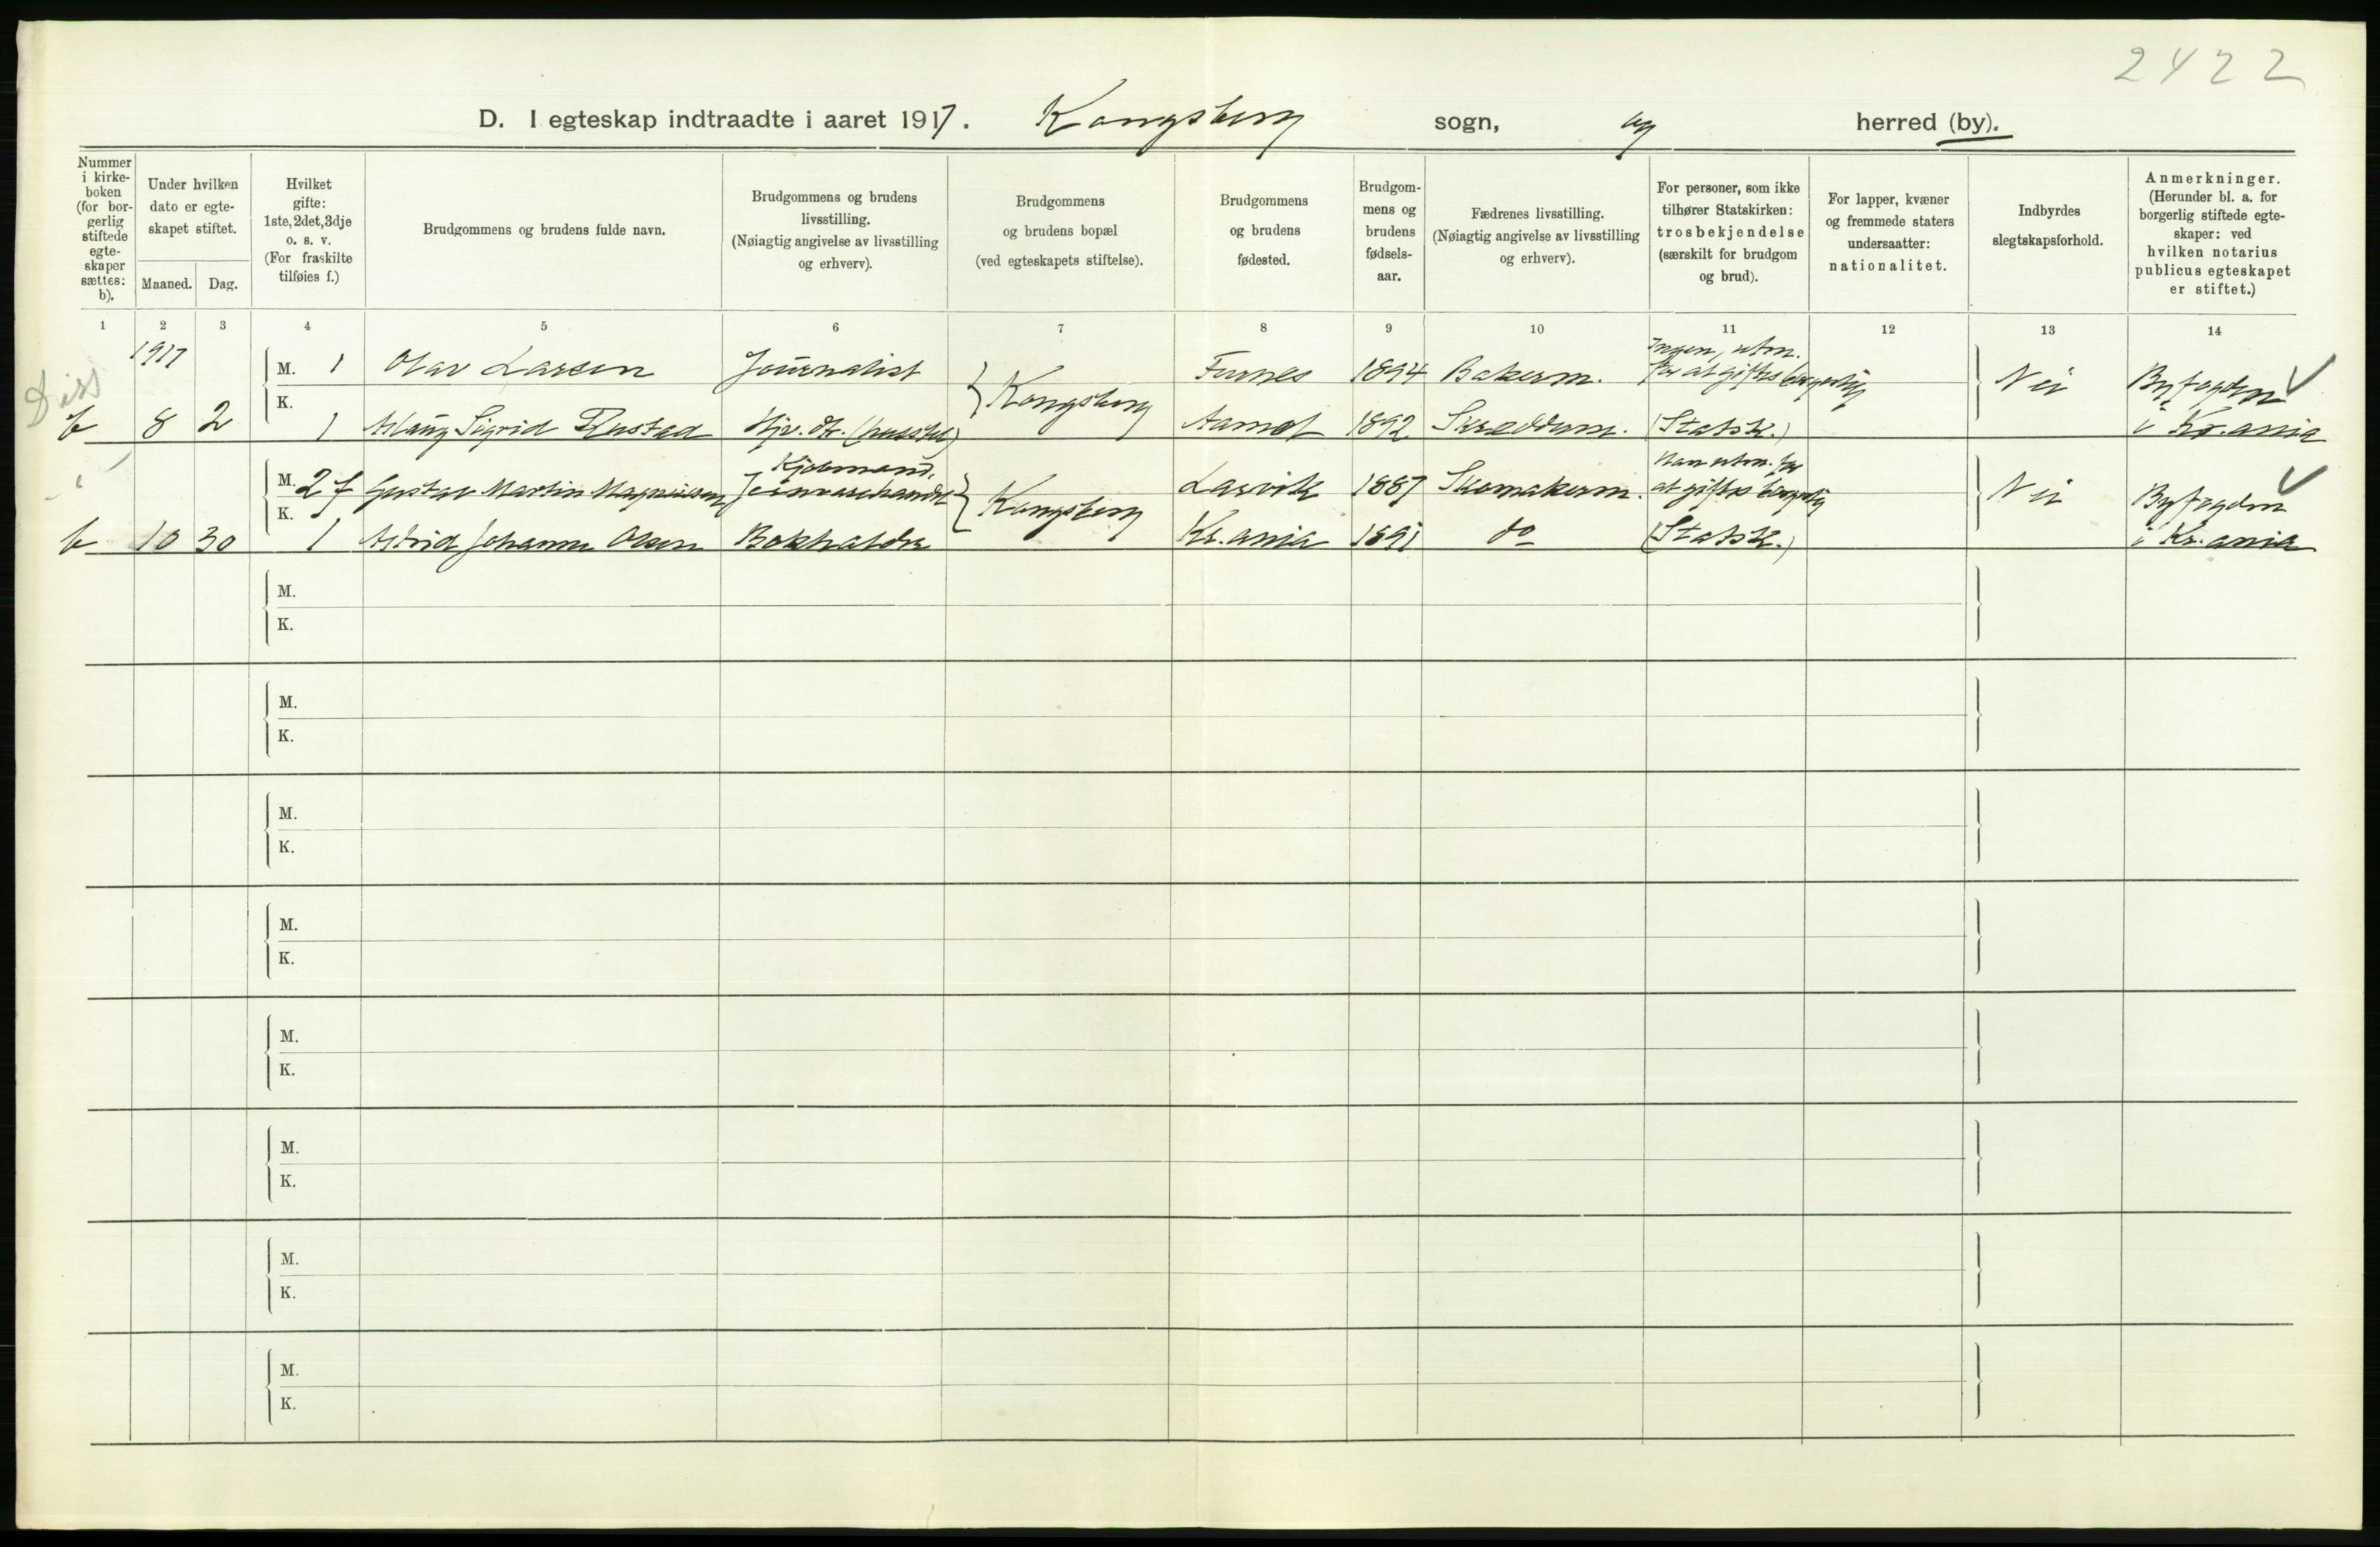 2422
D. I egteskap indtraadte i aaret 1917. Kongsberg sogn, og herred (by).
Nummer i kirke-boken (for bor-gerlig stiftede egte-skaper sættes: b).
Under hvilken dato er egte-skapet stiftet.
Maaned. Dag.
Hvilket gifte: 1ste, 2det, 3dje o. s. v. (For fraskilte tilføies f.)
Brudgommens og brudens fulde navn.
Brudgommens og brudens livsstilling. (Nøiagtig angivelse av livsstilling og erhverv).
Brudgommens og brudens bopæl (ved egteskapets stiftelse).
Brudgommens og brudens fødested.
Brudgom-mens og brudens fødsels-aar.
Fædrenes livsstilling. (Nøiagtig angivelse av livsstilling og erhverv).
For personer, som ikke tilhører Statskirken: trosbekjendelse (særskilt for brudgom og brud).
For lapper, kvæner og fremmede staters undersaatter: nationalitet.
Indbyrdes slegtskapsforhold.
Anmerkninger. (Herunder bl. a. for borgerlig stiftede egte-skaper: ved hvilken notarius publicus egteskapet er stiftet.)
1 2 3 4 5 6 7 8 9 10 11 12 13 14
1917
Diss
M. 1 Olav Larsen Journalist Kongsberg Furnes 1894 Bakerm. Ingen, utm. for at giftes borgerlig Nei Byfogden
b 8 2 K. 1 Aslaug Sigrid Rustad Hjv. dtr. (husstel) Aamot 1892 Skrædderm. (Statsk.) i Kr.ania
M. 2 f Gustav Martin Magnussen Kjøbmand, Jernvarehandel Kongsberg Larvik 1887 Skomakerm. Han utm. for at giftes borgerlig Nei Byfogden
b 10 30 K. 1 Astrid Johanne Olsen Bokholder Kr.ania 1891 do (Statsk.) i Kr.ania
M.
K.
M.
K.
M.
K.
M.
K.
M.
K.
M.
K.
M.
K.
M.
K.